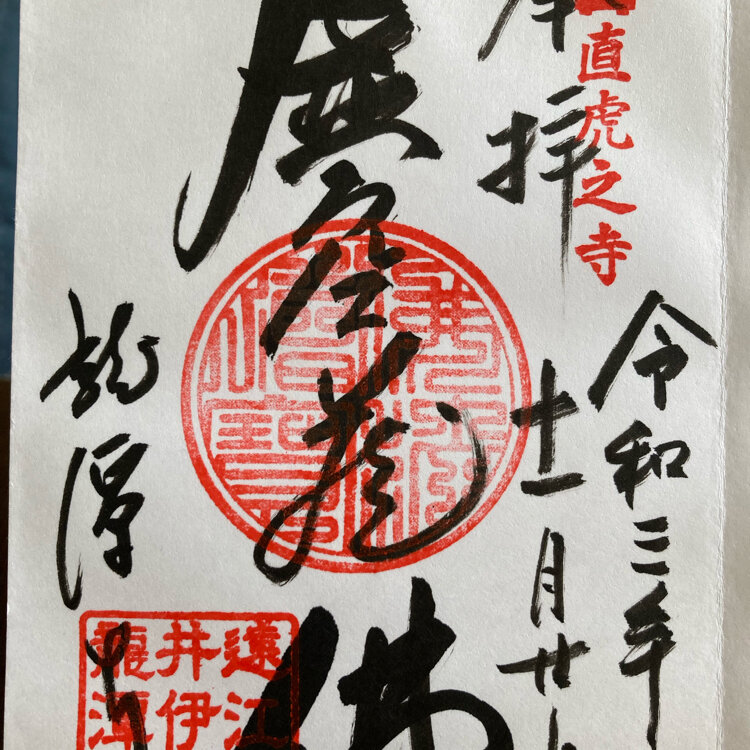 直虎之寺
奉拝
令和三年
十一月廿
虚空蔵佛
龍潭寺
遠江
井伊
龍潭